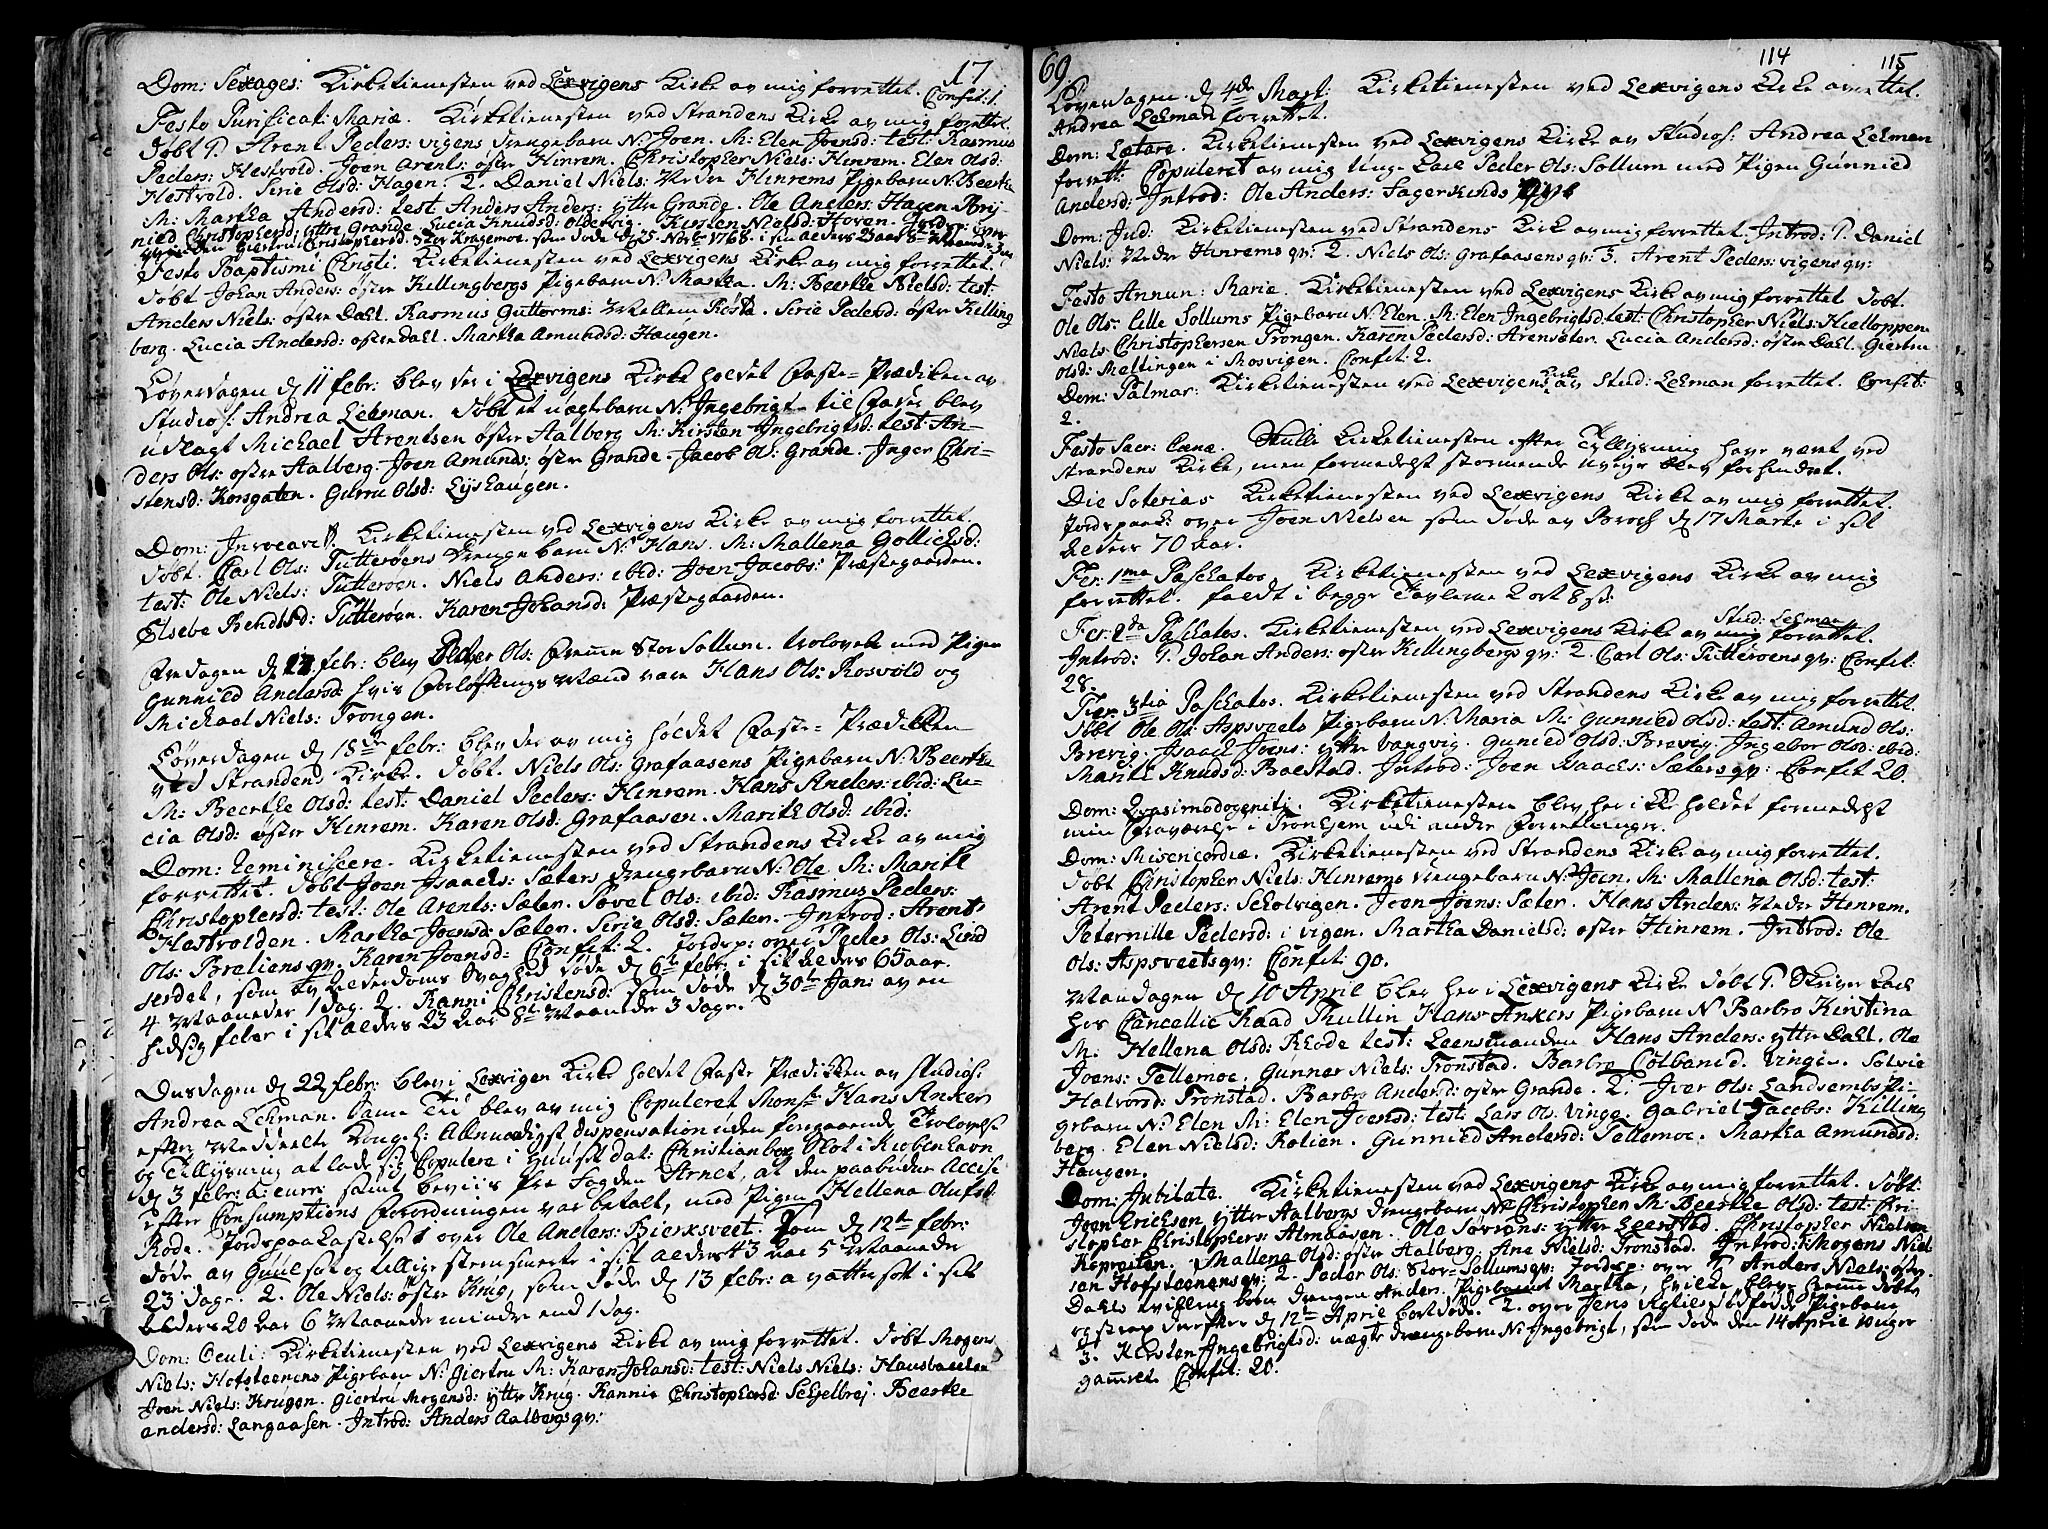 17
Dom: Sexages: Kirketienesten ved Lexvigens Kirke av mig forrettet. Confit: 1.
Festo Purificat: Mariæ. Kirketienesten ved Strandens Kirke av mig forrettet.
Døbt 1. Arent Peders: vigens Drengebarn N: Joen. M: Elen Joensd: test: Rasmus
Peders: Hestvold. Joen Arents: østr Hinrem. Christopher Niels: Hinrem. Elen Olsd:
Hestvold. Serie Olsd: Hagen. 2. Daniel Niels: Neder Hinrems Pigebarn N: Beerthe
M: Martha Andersd: test Anders Anders: ytr Grande. Ole Anders: Hagen Bry-
nild Christophersd: yttre Grande. Lucia Knudsd: Oldervig. Kirsten Nielsd: Hoven. Jordsp: over
Pigen Giertru Christophersd: Stor Kragemoe. som døde d 25 Novbr 1768. i sin alders 23 aar 8te Maaneder
Festo Baptismi Christi. Kirketienesten ved Lexvigens Kirke av mig forrettet.
Døbt Johan Anders: østre Killingbergs Pigebarn N: Martha. M: Beerthe Nielsd: test:
Anders Niels: østre Dahl. Rasmus Guttorms: Mellem Røsta. Serie Pedersd: østr Killing
berg. Lucia Andersd: østre Dahl. Martha Amundsd: Haugen.
Løverdagen d 11 febr: blev her i Lexvigens Kirke holdet Faste-Prædiken av
Studios: Andrea Lehman. Døbt et uægtebarn N: Ingebrigt til Fader blev
udlagt Michael Arentsen østr Aalberg M: Kirsten Ingebrigtsd: test: An-
ders Ols: østre Aalberg. Joen Amunds: østr Grande. Jacob Ols: Grande. Inger Chri-
stensd: Korsgaten. Gurru Olsd: Lyshaugen.
Dom: Invocavit. Kirketienesten ved Lexvigens Kirke av mig forrettet.
Døbt. Carl Ols: Tutterøens Drengebarn N: Hans. M: Mallena Gollichsd:
test: Ole Niels: Tutterøen. Niels Anders: ibid: Joen Jacobs: Præstegaarden.
Elsebe Bendtsd: Tutterøen. Karen Johansd: Præstegaarden.
Fredagen d 17 febr: blev Peder Ols: Stor Sollum. trolovet med Pigen
Gunnild Andersd: hvis Forlofningsmænd vare Hans Ols: Rosvold og
Michael Niels: Trongen.
Løverdagen d 18de febr: blev der av mig holdet Faste-Prædikken
ved Strandens Kirke. Døbt. Niels Ols: Grafaasens Pigebarn N: Beerthe
M: Beerthe Olsd: test: Daniel Peders: Hinrem. Hans Anders: ibid: Lu-
cia Olsd: østr Hinrem. Karen Olsd: Grafaasen. Marith Olsd: ibid:
Dom: Reminiscere. Kirketienesten ved Strandens Kirke av mig
forrettet. Døbt Joen Isaachs: Sæters Drengebarn N: Ole M: Marith
Christophersd: test: Ole Arents: Sæter. Povel Ols: ibid: Rasmus Peders:
Hestvolden. Martha Joensd: Sæter. Serie Olsd: Sæter. Introd: Arent
Ols: Brøliens qv. Karen Joensd: Confit: 2. Jordsp: over Peder Ols: Lind
serdet, som av Alderdoms Svaghed døde d 6te febr: i sit alders 65 aar.
4 Maaneder 1 dag. 2. Ranni Christensd: som døde d 30te Jan: av en
hidsig feber i sit alders 23 aar 8te Maaneder 3 dage.
Onsdagen d 22 febr: blev i Lexvigen Kirke holdet Faste Prædikken av Studios:
Andrea Lehman. Samme Tid blev av mig Copuleret Monsr Hans Anker
efter meddeelte Kongel: Allernaadigst dispensation uden forgaaende Trolovelse
og Tillysning at lade sig Copulere i Huuset dat: Christianborg Slot i Kiøbenhavn
d 3 febr: a: curr: samt beviis fra fogden Arnet, at den paabudne Accise
efter Consumptions Forordningen var betalt, med Pigen Hellena Olufsd:
Rode. Jordspaakastelse 1 over Ole Anders: Bierksveet. som d 12te febr:
døde av Guulsot og tillige steensmerte i sit alders 43 aar 5 Maaneder
23 dage. 2. Ole Niels: østre Krug, som døde d 13 febr: av vattersot i sit
alders 20 aar 6 Maaneder mindre end 1 dag.
Dom: Oculi: Kirketienesten ved Lexvigens Kirke av mig forrettet. Døbt Mogens
Niels: Hofsteenens Pigebarn N: Giertru M: Karen Johansd: test: Niels Niels: Hansbacken
Joen Niels: Krugen. Giertru Mogensd: ytter Krug. Rannie Christophersd: Schjelbrej. Beerthe
andersd: Langaasen. Introd: Anders Aalbergs qv:
69
114
115
Løverdagen d 4de Mart: Kirketienesten ved Lexvigens Kirke av
Andrea Lehman forrettet.
Dom: Lætare. Kirketienesten ved Lexvigens Kirke av Studios: Andrea Lehman
forrett: Copuleret av mig unge Karl Peder Ols: Sollum med Pigen Gunnild
Andersd: Introd: Ole Anders: Fagerlunds
Dom: Jud: Kirketienesten ved Strandens Kirke av mig forrettet. Introd: 1. Daniel
Niels: Neder Hinrems qv: 2. Niels Ols: Grafaasens qv: 3. Arent Peders: vigens qv:
Festo Annun: Mariæ. Kirketienesten ved Lexvigens Kirke av mig forrettet Døbt.
Ole Ols: lille Sollums Pigebarn N: Elen. M: Elen Ingebrigtsd: test: Christopher Niels: Kielloppen
Niels Christophersen Trongen. Karen Pedersd: Arensæter. Lucia Andersd: østr Dahl. Giertru
Olsd: Meltingen i Mosvigen. Confit: 2.
Dom: Palmar: Kirketienesten ved Lexvigens Kirk av Stud: Lehman forrettet. Confit:
2.
Festo Sacr: Cænæ. Skulle Kirketienesten efter Tillysning have været ved
Strandens Kirke, men formedelst stormende uveyr blev forhindret.
Die Soterias. Kirketienesten ved Lexvigens Kirke av mig forrettet.
Jordspaak: over Joen Nielsen som døde av Broch d 17 Marti i sit
alders 70 aar.
Fer: 1ma Paschatos. Kirketienesten ved Lexvigens Kirke av mig
forrettet. faldt i begge Tavlerne 2 ort 8 s:
Fer: 2da Paschatos. Kirketienesten ved Lexvigens Kirke av mig Stud: Lehman forrettet.
Introd: 1. Johan Anders: østr Killingbergs qv: 2. Carl Ols: Tutterøens qv: Confit:
28.
Fer: 3tia Paschatos. Kirketienesten ved Strandens Kirke av mig forrettet.
Døbt Ole Ols: Aspsveets Pigebarn N: Maria M: Gunnild Olsd: test: Amund Ols:
Brevig. Isaach Joens: yttr Vangvig. Gunild Olsd: Brevig. Ingebor Olsd: ibid:
Marith Knudsd: Balstad. Introd: Joen Isaachs: Sæters qv: Confit 20.
Dom: Qvasimodogeniti. Kirketienesten blev her ikke holdet formedelst
min Fraværelse i Tronhjem udi andre Forretninger.
Dom: Misericordiæ. Kirketienesten ved Strandens Kirke av mig forrettet.
Døbt Christopher Niels: Hinrems Drengebarn N: Joen. M: Mallena Olsd: test:
Arent Peders: Scholvigen. Joen Joens: Sæter. Hans Anders: Neder Hinrem.
Peternille Pedersd: i vigen. Martha Danielsd: østr Hinrem. Introd: Ole
Ols: Aspsveets qv: Confit: 90.
Mandagen d 10 April blev her i Lexvigens Kirke Døbt 1. Skriver Karl
hos Cancellie Raad Thullin Hans Ankers Pigebarn N Barbro Kirstina
M. Hellena Olsd: Rhode test: Leensmanden Hans Anders: yttr Dahl. Ole
Joens: Tellemoe. Gunner Niels: Tronstad. Barbro Colbanid. Vinge. Solvie
Halvorsd: Tronstad. Barbro Andersd: østr Grande. 2. Iver Ols: Landsembs Pi-
gebarn N: Elen M: Elen Joensd: test: Lars Ols: Vinge. Gabriel Jacobs: Killing
berg. Elen Nielsd: Kolien. Gunnild Andersd: Tellemoe. Martha Amundsd:
Haugen.
Dom: Jubilate. Kirketienesten ved Lexvigens Kirke av mig forrettet. Døbt:
Joen Erichsen ytter Aalbergs Drengebarn N: Christopher M: Beerthe Olsd: test: Chri-
stopher Christophers: Almaasen. Ole Sørrens: ytter Leerstad. Christopher Nielsen
Kiproiten. Mallena Olsd: østr Aalberg. Ane Nielsd: Tronstad. Introd: Mogens Niel
sen Hofsteenens qv: 2. Peder Ols: Stor-Sollums qv: Jordsp: over 1. Anders Niels: østr.
Dahls tvilling børn drengen Anders. Pigebarnet Martha, hvilke bleve hiemme døbte
og strax derefter d 12te April bortdøde. 2. over Jens dødfødde Pigebarn
3. Kirsten Ingebrigtsd: uægte Drengebarn N: Ingebrigt, som døde den 14 April 10 uger
gammel. Confit: 20.